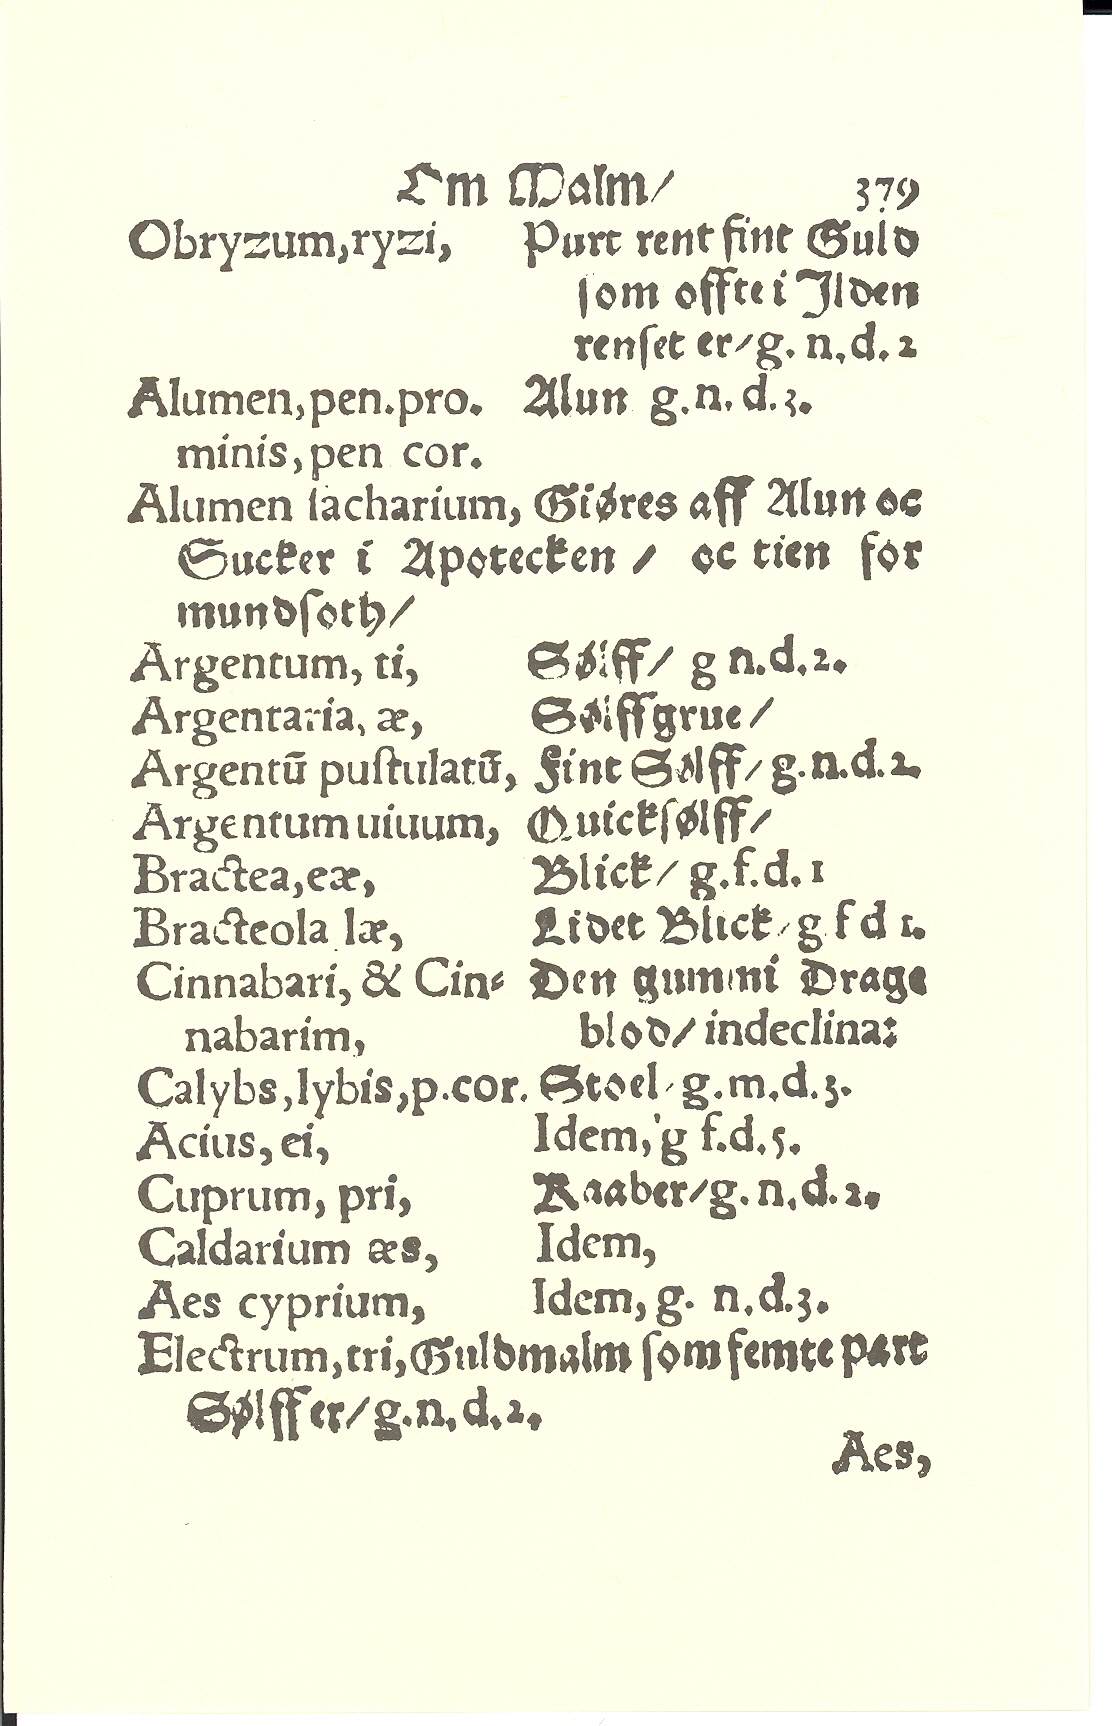 Om Malm/ 379
Obryzum,ryzi, Purt rent fint Guld
som offte i Jlden
renſet er/g. n. d. 2
Alumen, pen.pro. Alun g. n. d. 3.
minis, pen cor.
Alumen ſacharium, Giøres aff Alun oc
Sucker i Apotecken / oc tien for
mundſoth/
Argentum, ti, Sølff/ g n. d. 2.
Argentaria, æ, Sølffgrue/
Argentū puſtulatū, Fint Sølff/ g. n. d. 2.
Argentum uiuum, Quickſølff/
Bractea, eæ, Blick/ g. f. d. 1
Bracteola læ, Lidet Blick/ g f d 1.
Cinnabari, & Cin⸗ Den gummi Drage
nabarim, blod/ indeclina:
Calybs, lybis, p.cor. Stoel/ g. m. d. 3.
Acius, ei, Idem, g f. d. 5.
Cuprum, pri, Kaaber/g. n. d. 2.
Caldarium æs, Idem,
Aes cyprium, Idem, g. n. d. 3.
Electrum, tri, Guldmalm ſom femte part
Sølff er/ g. n. d. 2.
Aes,